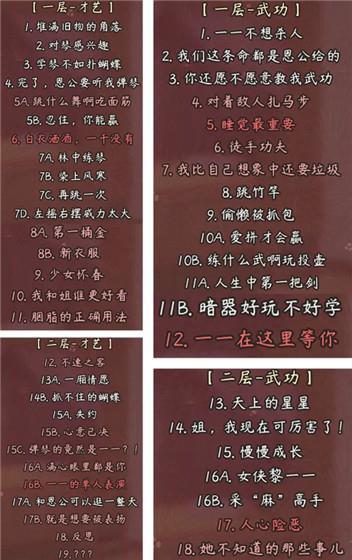 【一层-才艺】
1. 堆满旧物的角落
2. 对琴感兴趣
3. 学琴不如扑蝴蝶
4. 完了，恩公要听我弹琴
5A. 跳什么舞啊吃面筋
5B. 忍住，你能赢
6. 白衣洒酒，一干没有
7A. 林中练琴
7B. 染上风寒
7C. 再跳一次
7D. 左摇右摆威力太大
8A. 第一桶金
8B. 新衣服
9. 少女怀春
10. 我和姐谁更好看
11. 胭脂的正确用法
【二层-才艺】
12. 不速之客
13A. 一厢情愿
14B. 抓不住的蝴蝶
15A. 失约
15B. 心意已决
15C. 弹琴的竟然是一一？！
16A. 满心眼里都是你
16B. 一一的单人表演
17A. 和恩公可以逛一整天
17B. 就是想要被表扬
18. 反思
19. ???
【一层-武功】
1. 一一不想杀人
2. 我们这条命都是恩公给的
3. 你还愿不愿意教我武功
4. 对着敌人扎马步
5. 睡觉最重要
6. 徒手功夫
7. 我比自己想象中还要垃圾
8. 跳竹竿
9. 偷懒被抓包
10A. 爱拼才会赢
10B. 练什么武啊玩投壶
11A. 人生中第一把剑
11B. 暗器好玩不好学
12. 一一在这里等你
【二层-武功】
13. 天上的星星
14. 姐，我现在可厉害了！
15. 慢慢成长
16A. 女侠黎一一
16B. 采“麻”高手
17. 人心险恶
18. 她不知道的那些事儿